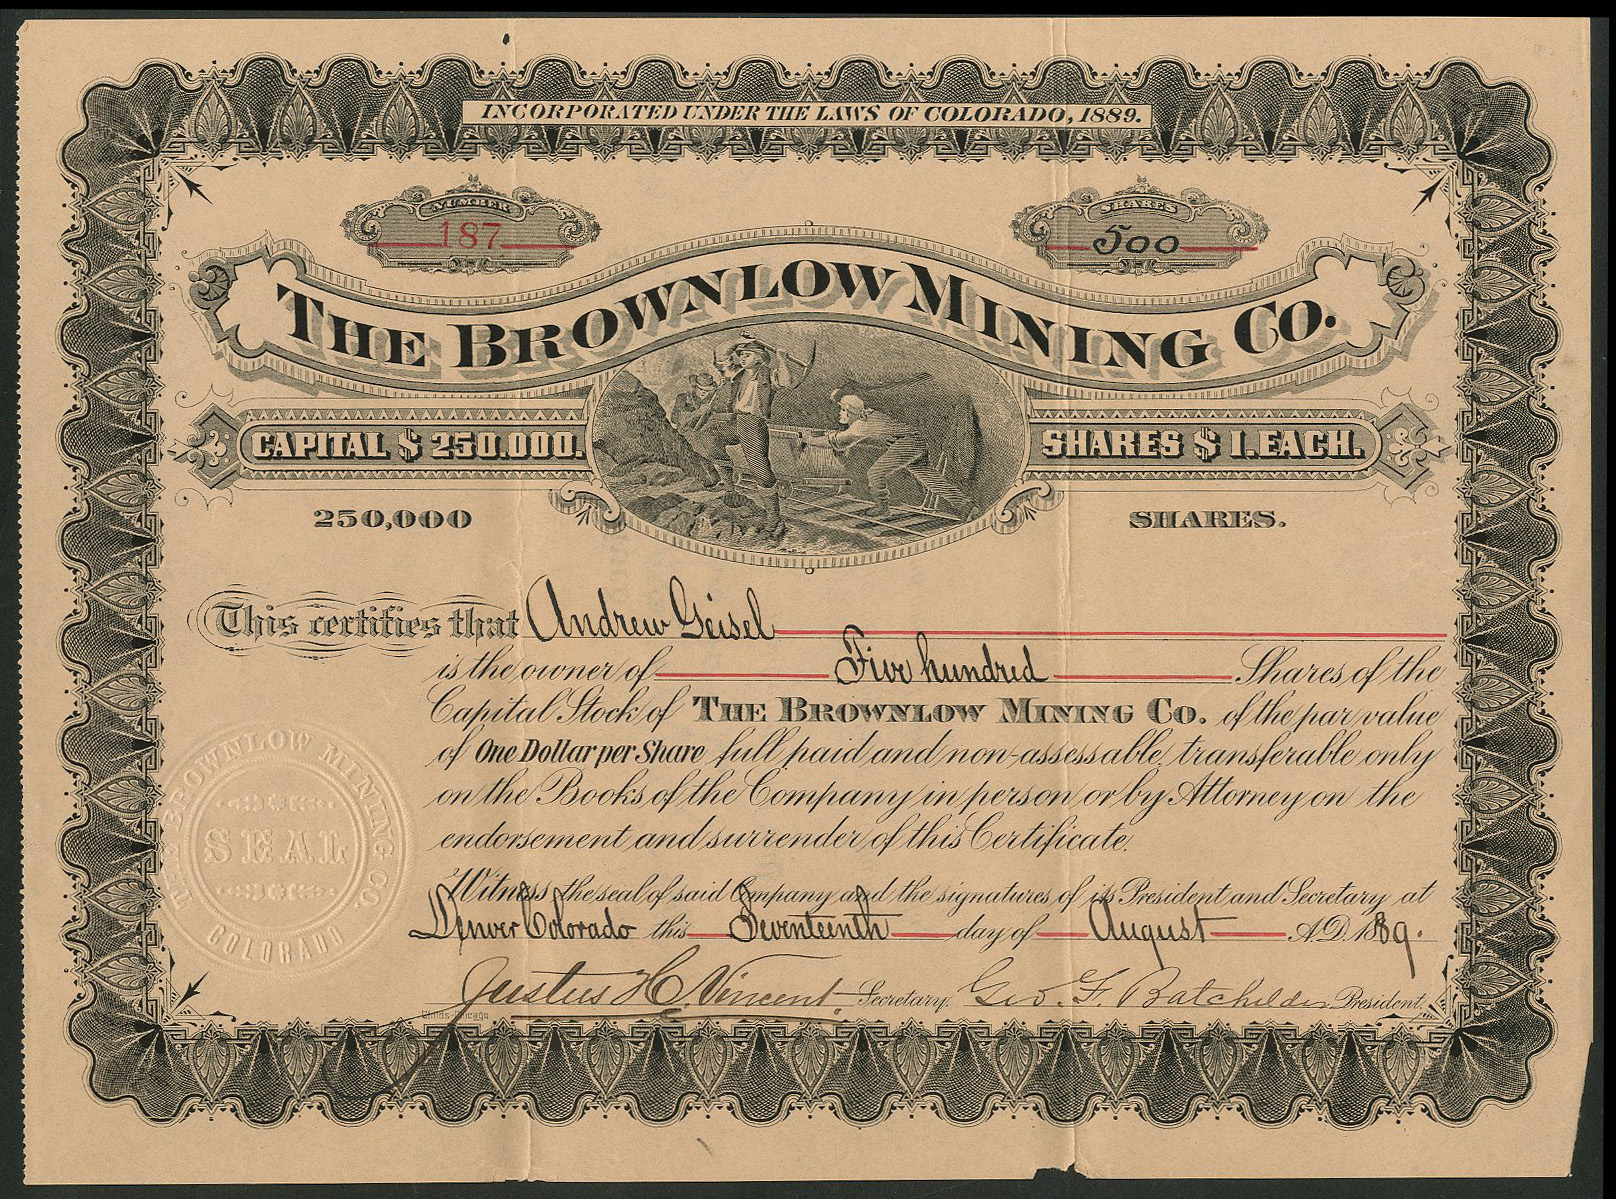 INCORPORATED UNDER THE LAWS OF COLORADO, 1889.
NUMBER
187
SHARES
500
THE BROWNLOW MINING CO.
CAPITAL $ 250.000.
SHARES $ 1. EACH.
250,000
SHARES.
This certifies that Andrew Geisel
is the owner of Five hundred Shares of the
Capital Stock of THE BROWNLOW MINING CO. of the par value
of One Dollar per Share full paid and non-assessable, transferable only
on the Books of the Company in person or by Attorney on the
endorsement and surrender of this Certificate.
Witness the seal of said Company and the signatures of its President and Secretary at
Denver Colorado this Seventeenth day of August A.D. 1889.
Justus H. Vincent Secretary. Geo. F. Batchelder President.
Childs-Chicago
THE BROWNLOW MINING CO.
SEAL
COLORADO